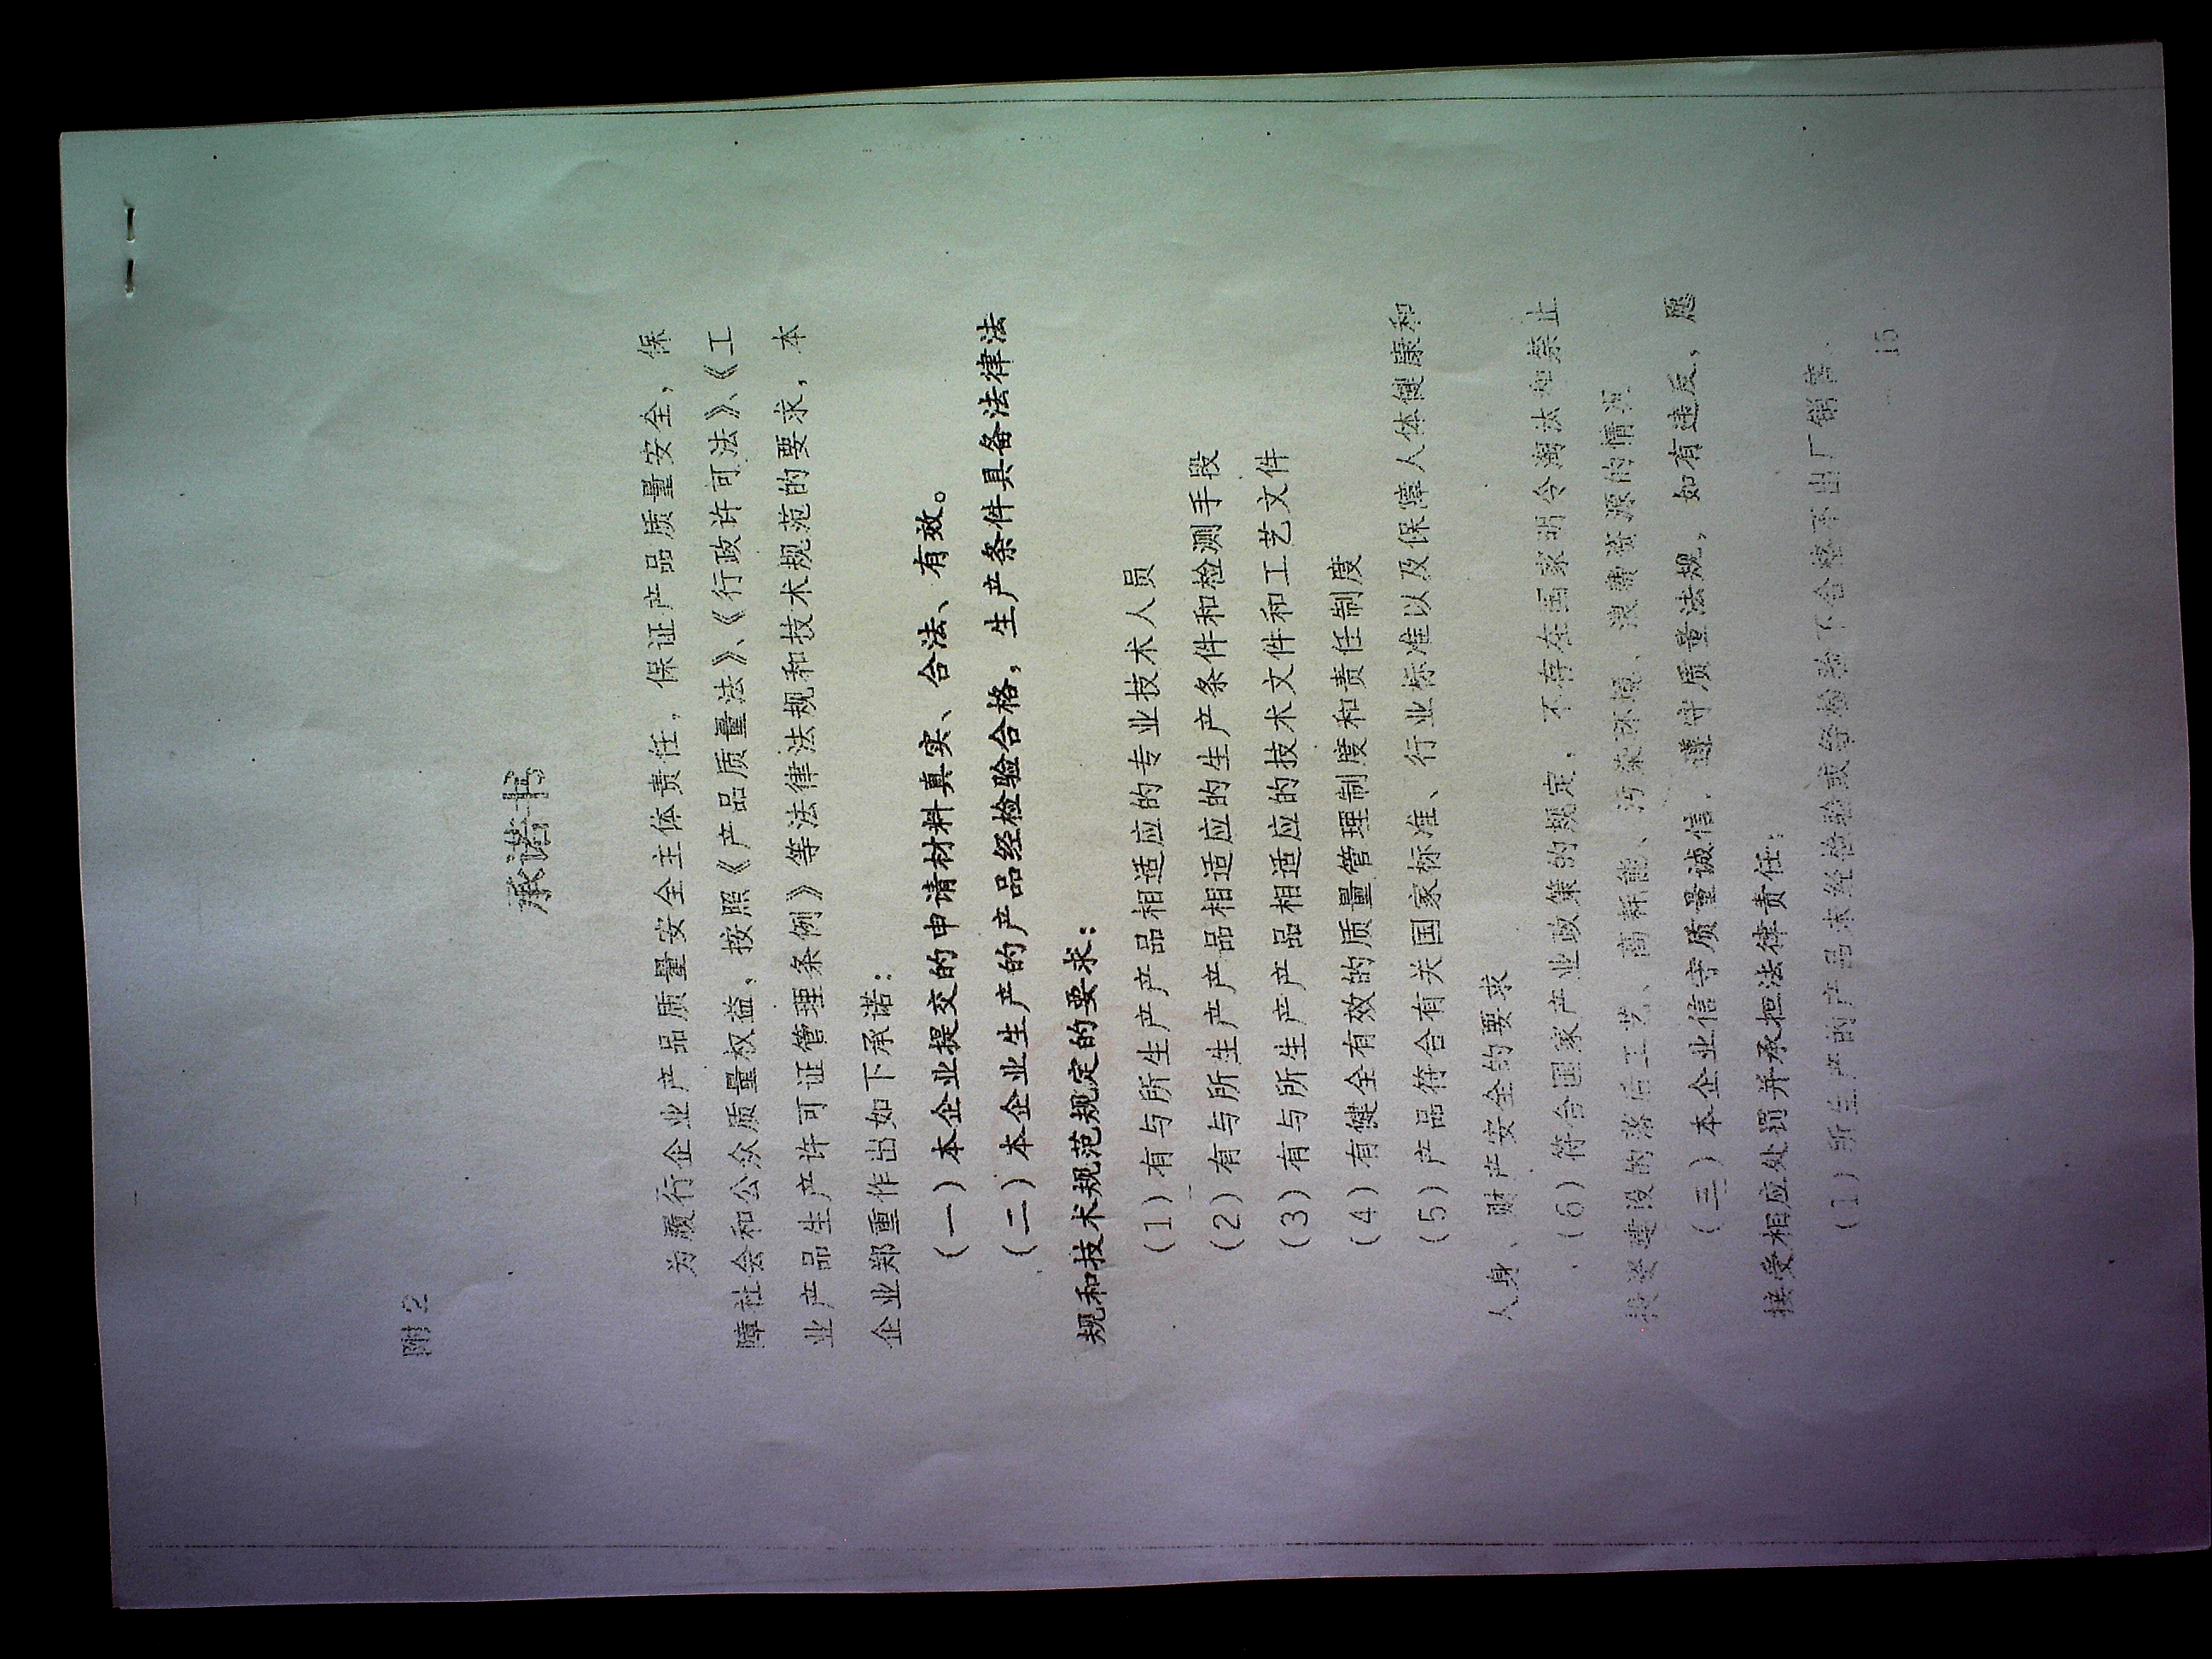 附2
承诺书
为履行企业产品质量安全主体责任，保证产品质量安全，保
障社会和公众质量权益，按照《产品质量法》、《行政许可法》、《工
业产品生产许可证管理条例》等法律法规和技术规范的要求，本
企业郑重作出如下承诺：
（一）本企业提交的申请材料真实、合法、有效。
（二）本企业生产的产品经检验合格，生产条件具备法律法
规和技术规范规定的要求：
（1）有与所生产产品相适应的专业技术人员
（2）有与所生产产品相适应的生产条件和检测手段
（3）有与所生产产品相适应的技术文件和工艺文件
（4）有健全有效的质量管理制度和责任制度
（5）产品符合有关国家标准、行业标准以及保障人体健康和
人身、财产安全的要求
（6）符合国家产业政策的规定，不存在国家明令淘汰和禁止
投资建设的落后工艺、高耗能、污染环境、浪费资源的情况
（三）本企业信守质量诚信，遵守质量法规，如有违反，愿
接受相应处罚并承担法律责任：
（1）所生产的产品未经检验或经检验不合格不出厂销售、
15